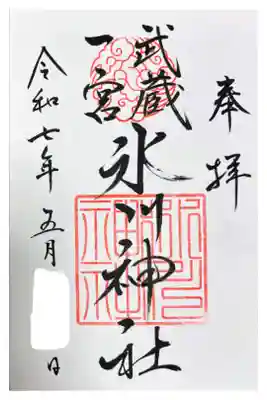 奉拝
武蔵
一宮
氷川神社
令和七年五月 日